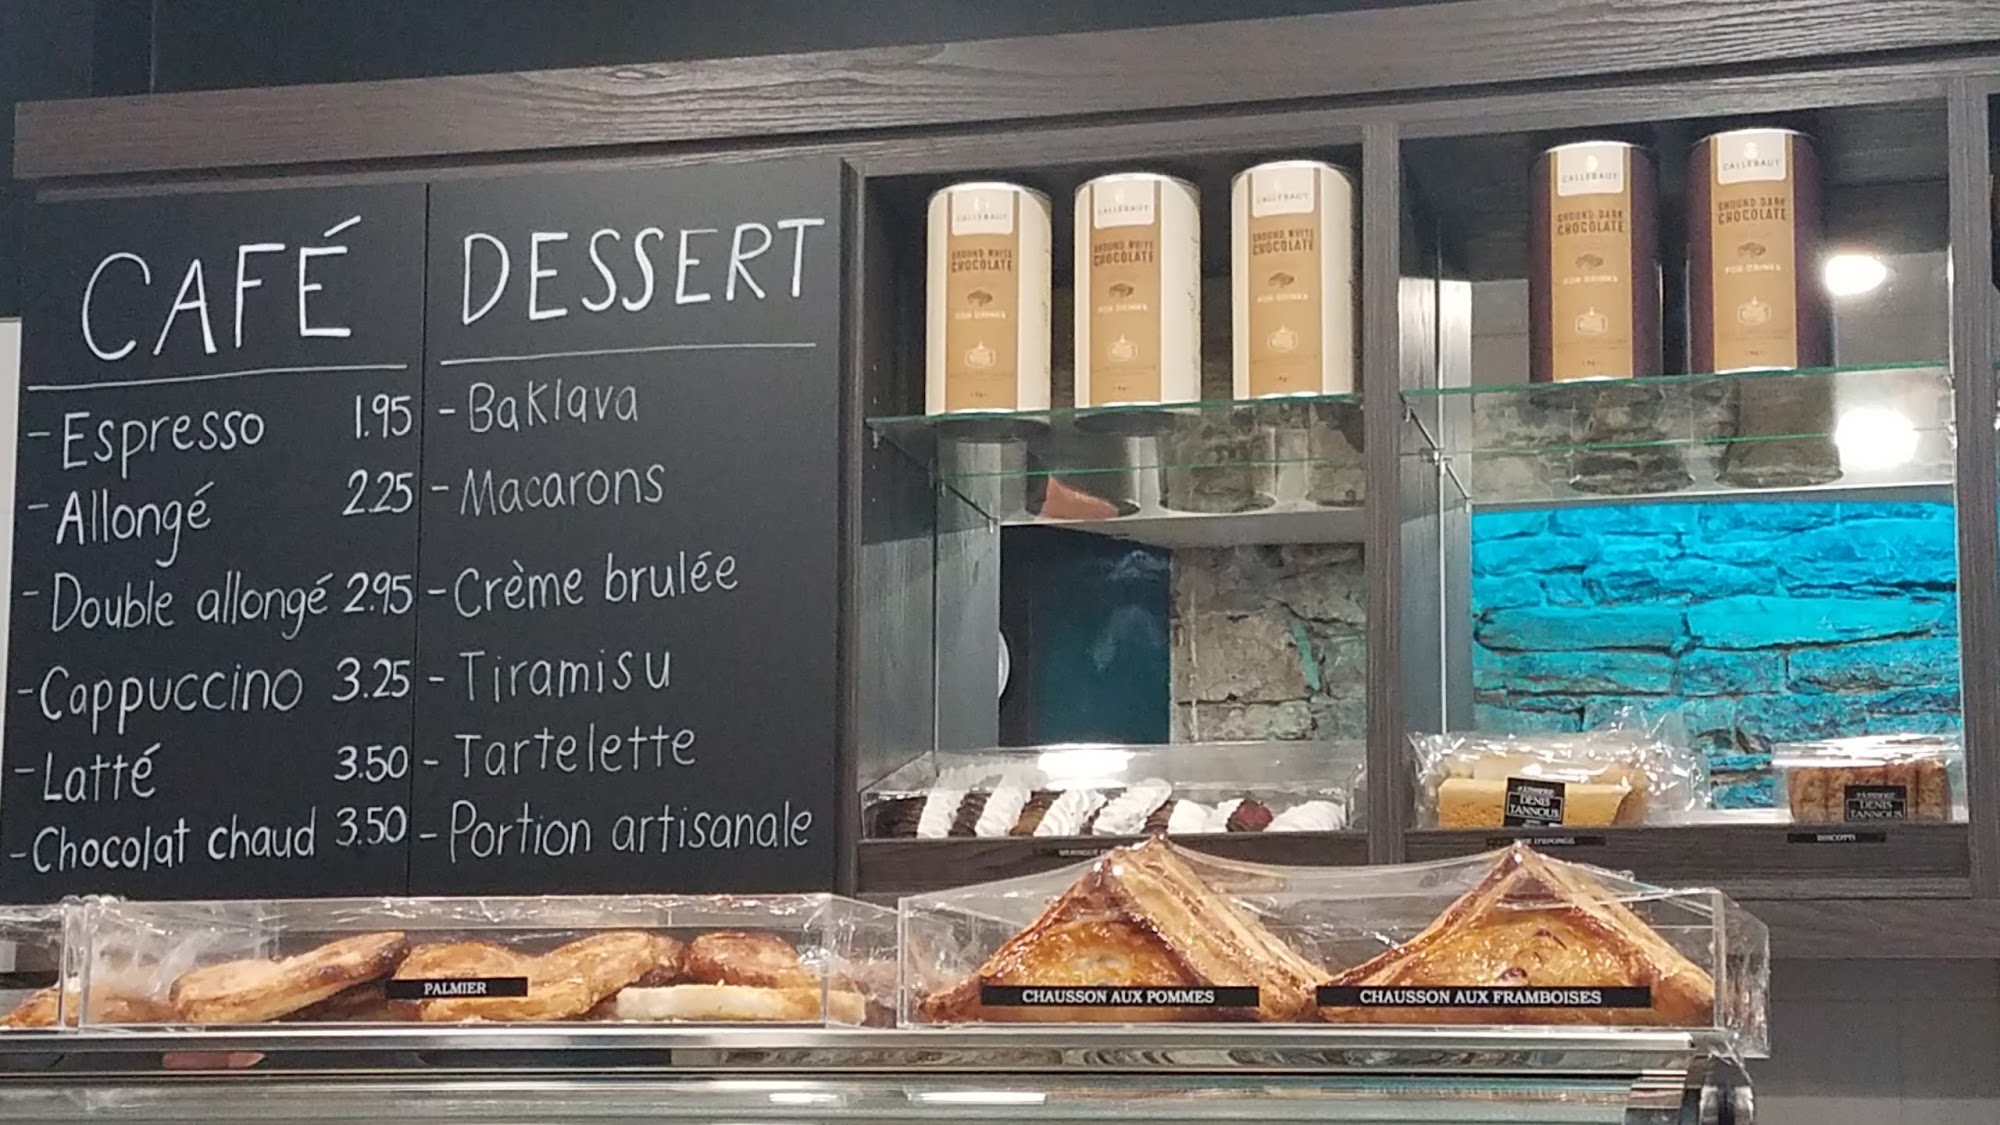 CAFÉ
- Espresso 1.95
- Allongé 2.25
- Double allongé 2.95
- Cappuccino 3.25
- Latté 3.50
- Chocolat chaud 3.50
DESSERT
- Baklava
- Macarons
- Crème brulée
- Tiramisu
- Tartelette
- Portion artisanale
CALLEBAUT
GROUND WHITE
CHOCOLATE
FOR DRINKS
CALLEBAUT
GROUND WHITE
CHOCOLATE
FOR DRINKS
CALLEBAUT
GROUND WHITE
CHOCOLATE
FOR DRINKS
CALLEBAUT
GROUND DARK
CHOCOLATE
FOR DRINKS
CALLEBAUT
GROUND DARK
CHOCOLATE
FOR DRINKS
PÂTISSERIE
DENIS
TANNOUS
PÂTISSERIE
DENIS
TANNOUS
BISCOTTI
PALMIER
CHAUSSON AUX POMMES
CHAUSSON AUX FRAMBOISES